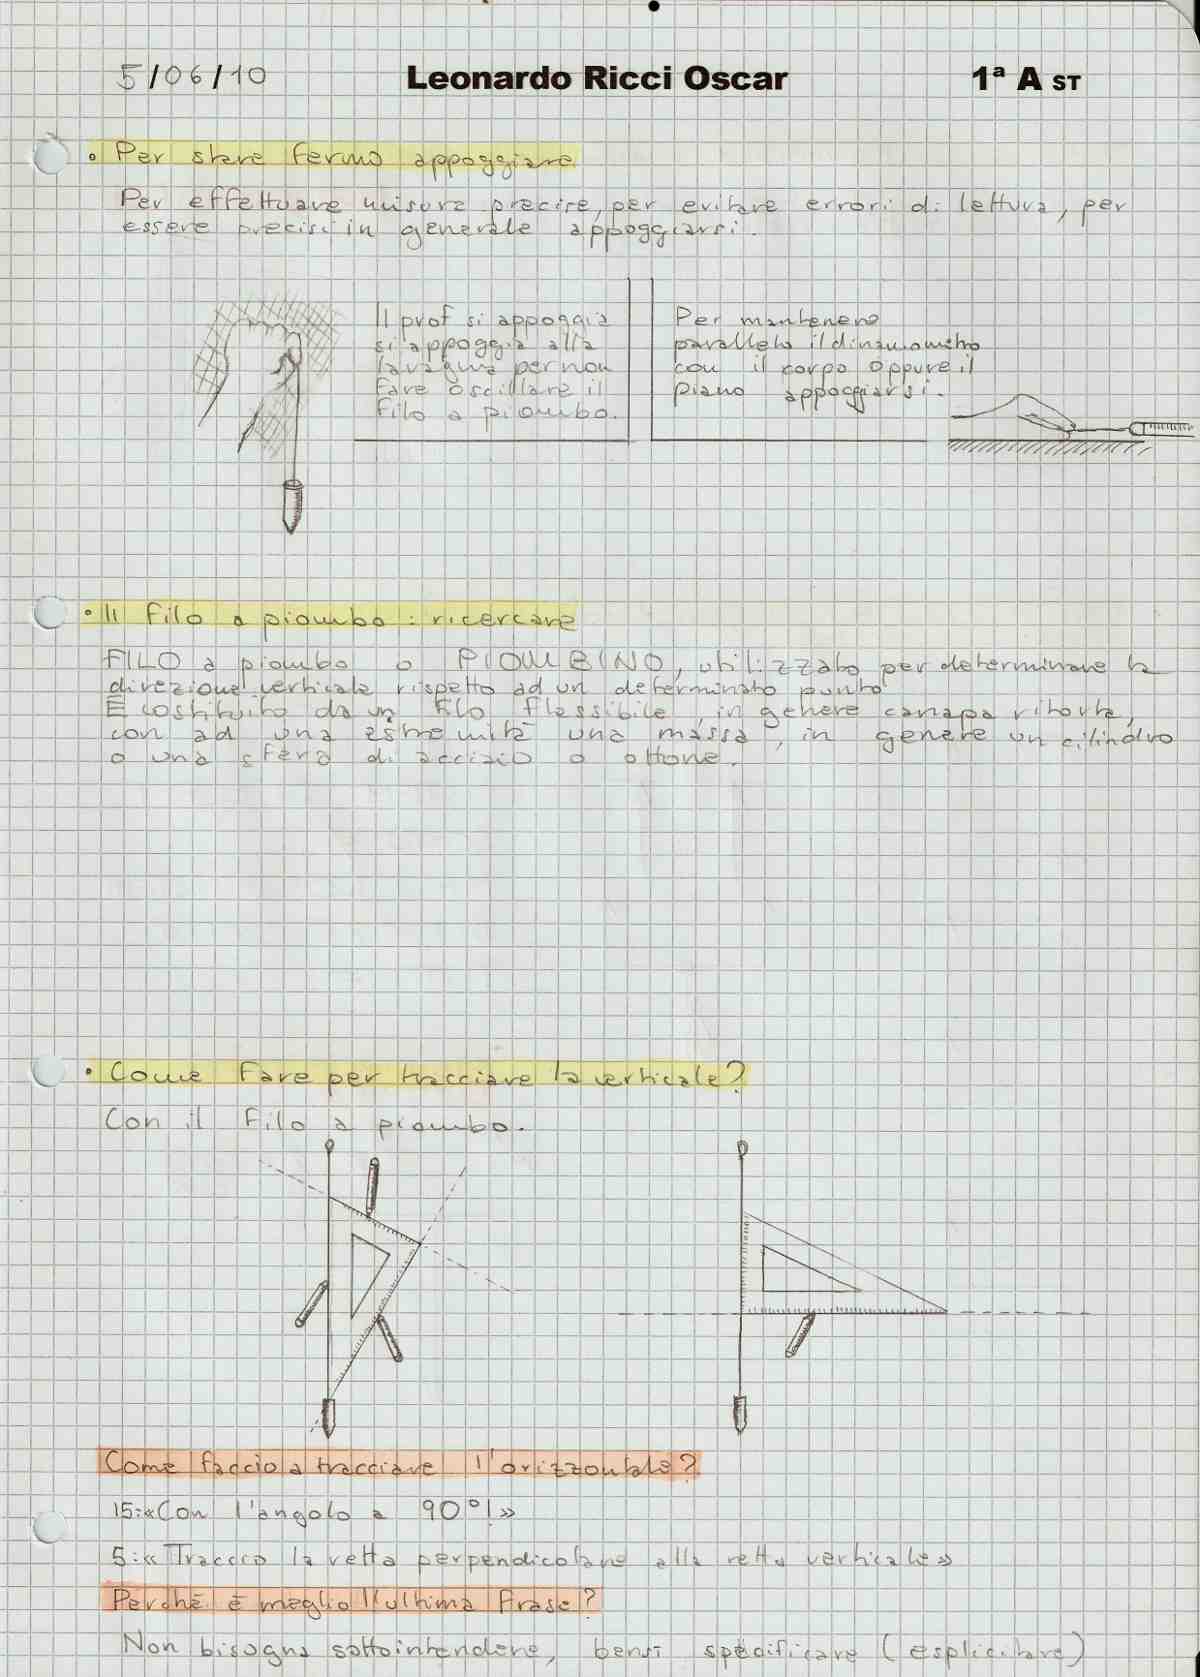 5/06/10 Leonardo Ricci Oscar 1ª A ST
• Per stare fermo appoggiare
Per effettuare misure precise, per evitare errori di lettura, per
essere precisi in generale appoggiarsi.
Il prof si appoggia
si appoggia alla
lavagna per non
fare oscillare il
filo a piombo.
Per mantenere
parallelo il dinamometro
con il corpo oppure il
piano appoggiarsi.
• Il filo a piombo : ricercare
FILO a piombo o PIOMBINO, utilizzato per determinare la
direzione verticale rispetto ad un determinato punto
È costituito da un filo flessibile, in genere canapa ritorta,
con ad una estremità una massa, in genere un cilindro
o una sfera di acciaio o ottone.
• Come fare per tracciare la verticale?
Con il filo a piombo.
Come faccio a tracciare l'orizzontale?
15:«Con l'angolo a 90°!»
5:« Traccio la retta perpendicolare alla retta verticale»
Perchè è meglio l'ultima frase?
Non bisogna sottointendere, bensì specificare (esplicitare)